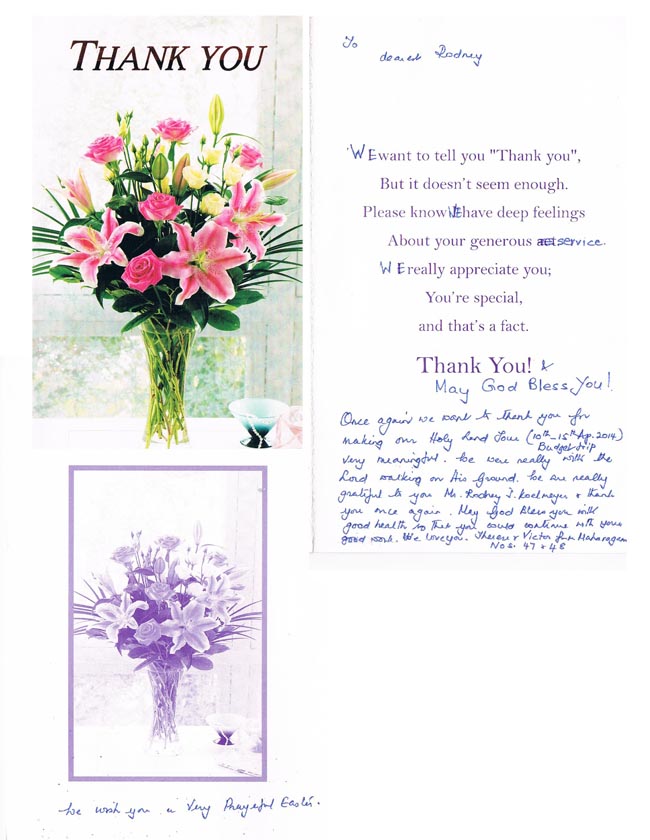 THANK YOU
To
dearest Rodney
WE want to tell you "Thank you",
But it doesn't seem enough.
Please know WE have deep feelings
About your generous service.
WE really appreciate you;
You're special,
and that's a fact.
Thank You! &
May God Bless You!
Once again we want to thank you for
making our Holy Land Tour (10th-15th Ap. 2014)
Budget trip
very meaningful. We were really with the
Lord walking on His Ground. We are really
grateful to you Mr. Rodney J. Koelmeyer & thank
you once again. May God Bless you with
good health so that you could continue with your
good work. We love you. & Victor from Maharagama
Nos. 47 & 48
We wish you a Very Prayerful Easter.